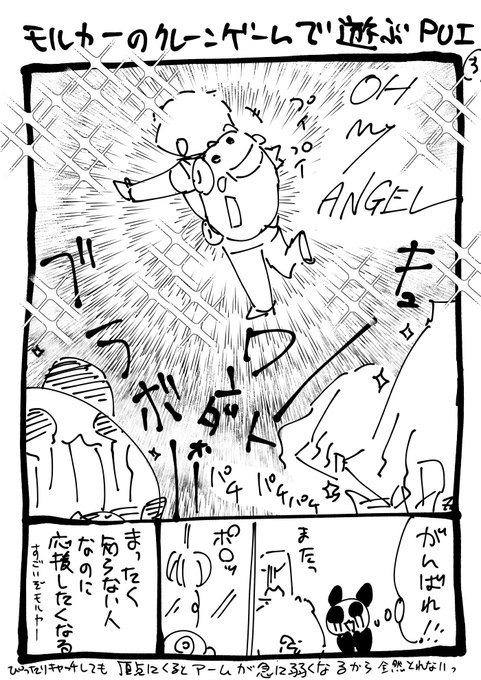 モルカーのクレーンゲームで遊ぶPUI
3
OH
My
ANGEL
プイ
プイ
キュ
ワ
ブラボー
パチ
パチパチ
がんばれ!!!
またっ
ポロッ
まったく
知らない人
なのに
応援したくなる
すごいぞモルカー
ぴったりキャッチしても頂点にくるとアームが急に弱くなるから全然とれないっ